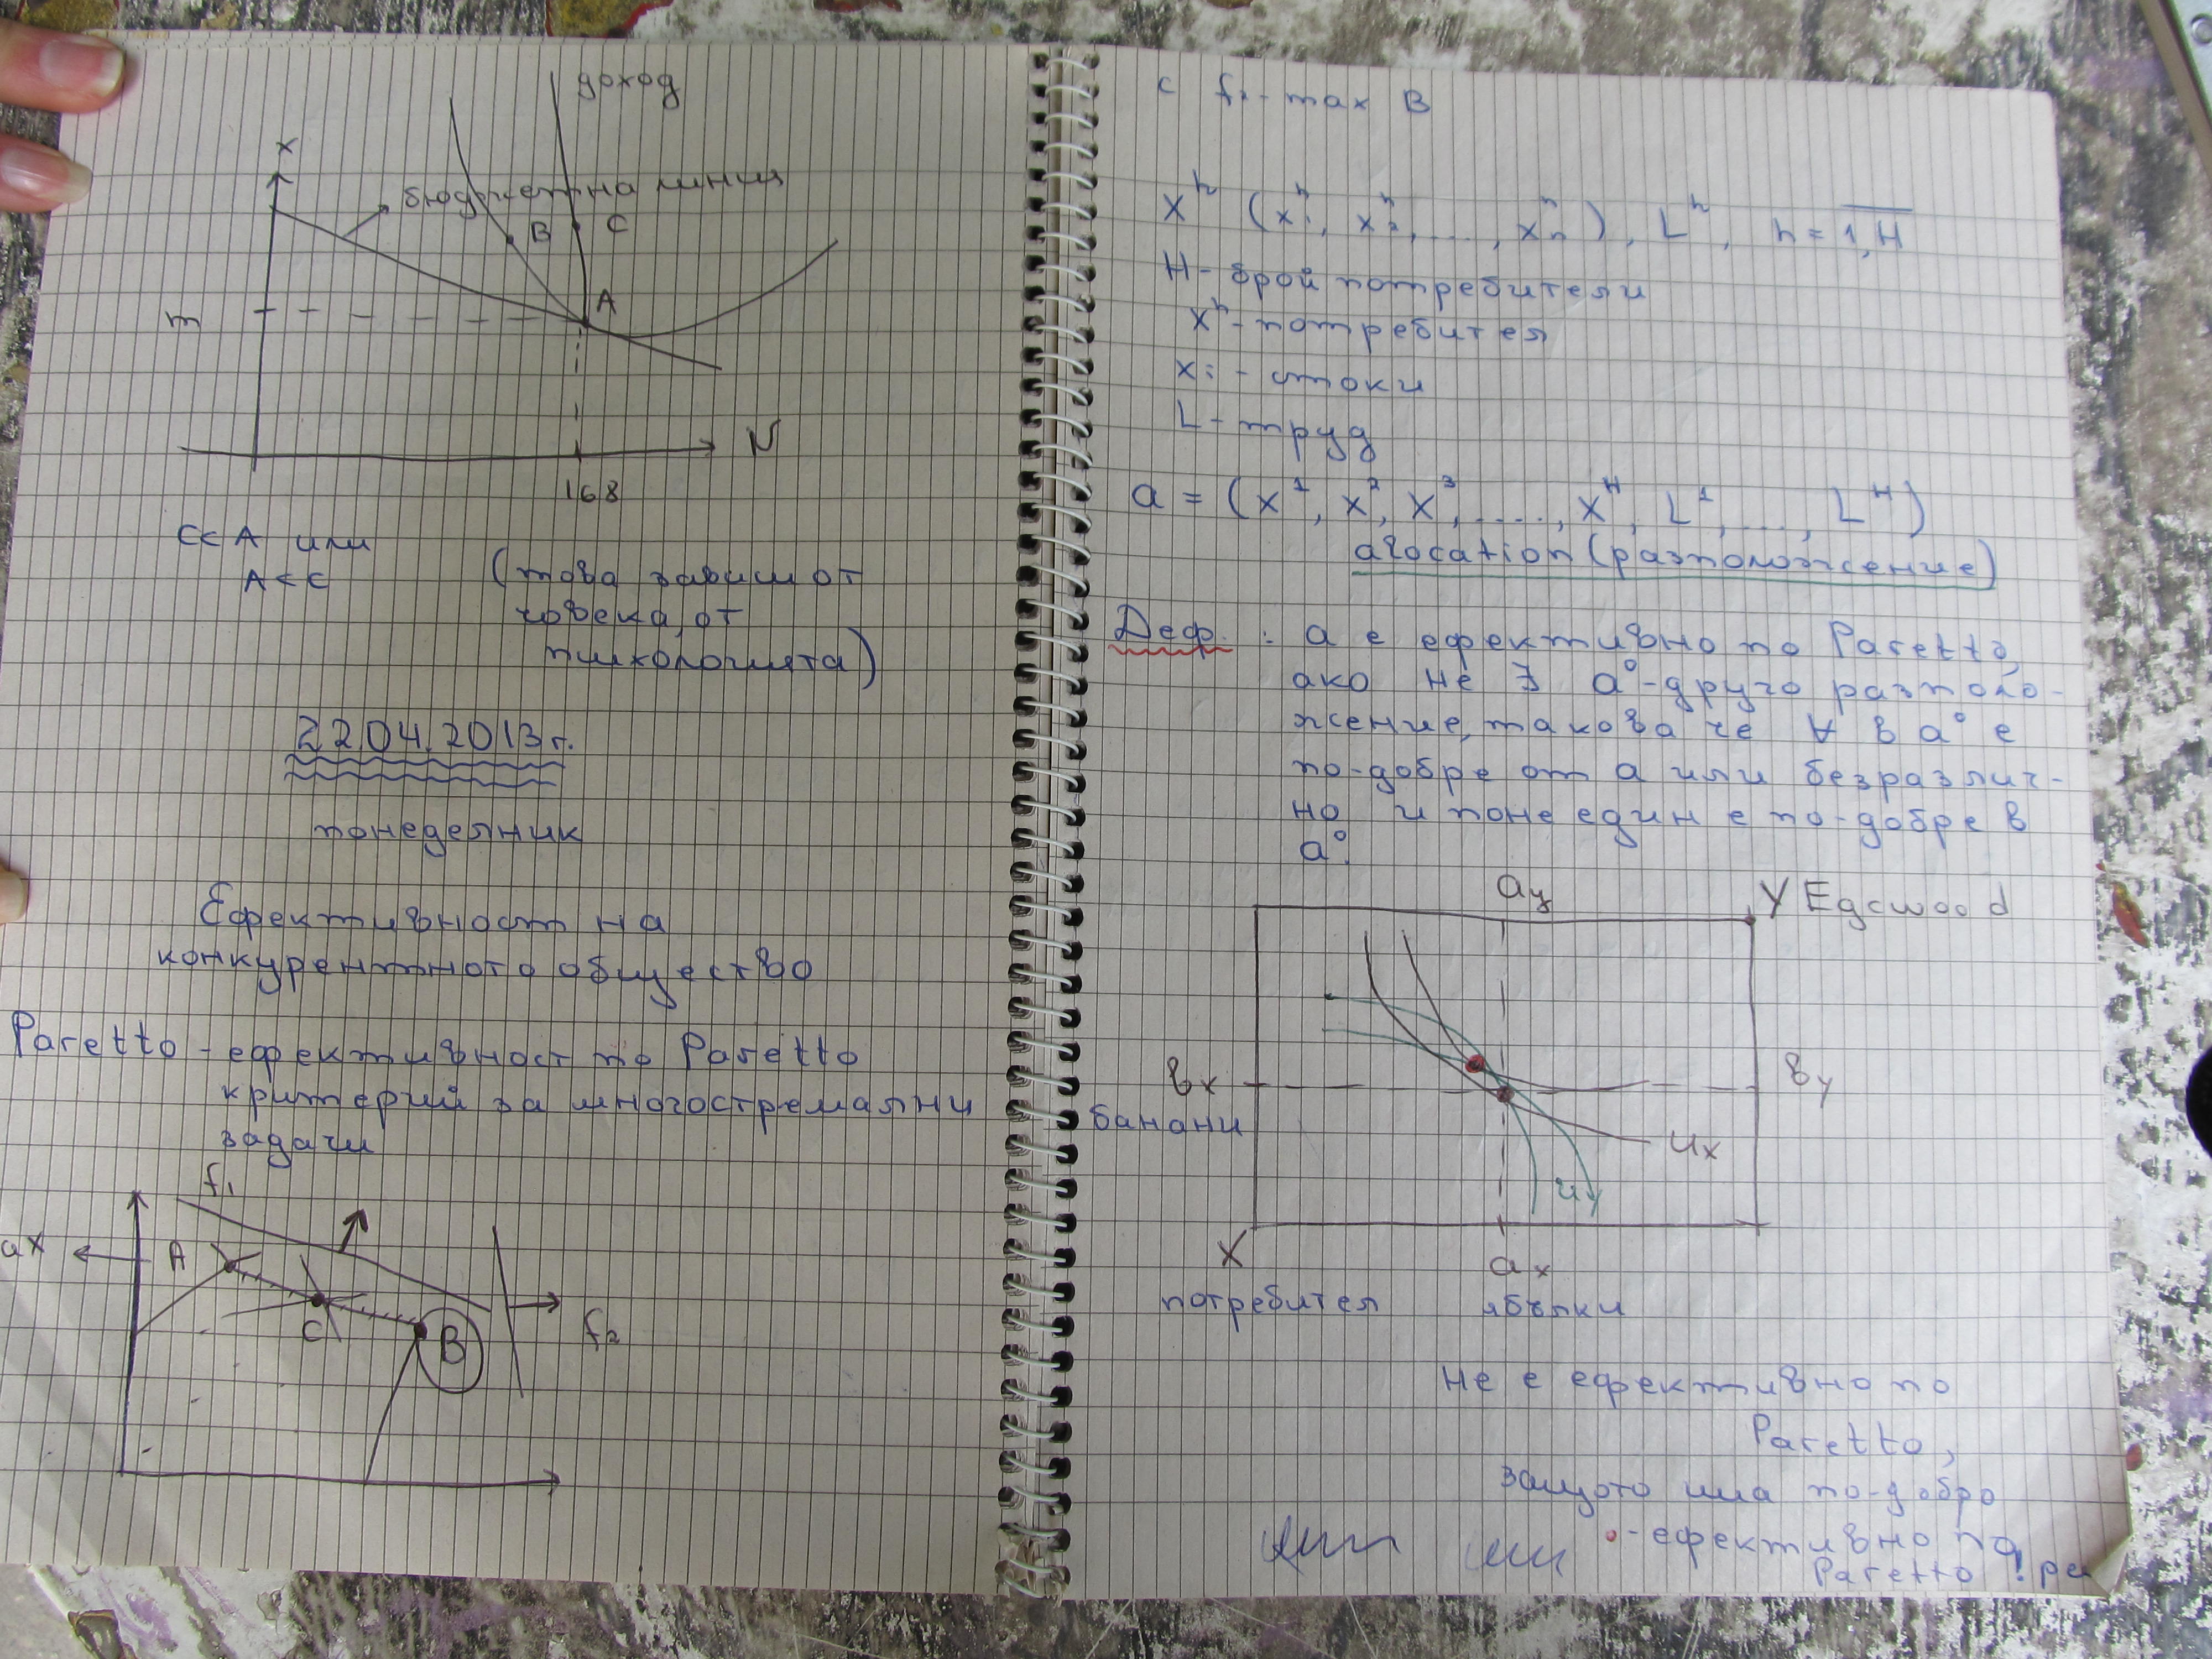 доход
x
бюджетна линия
B C
A
m
N
168
C<A или
A<C
(това зависи от
човека, от
психологията)
22.04.2013 г.
понеделник
Ефективност на
конкурентното общество
Paretto - ефективност по Paretto
критерий за многостремални
задачи
f₁
ax
A
C
B
f₂
с f₂ - max B
Xʰ (x₁ʰ, x₂ʰ, ..., xₙʰ), Lʰ, h = 1,H
H - брой потребители
Xʰ - потребител
xᵢ - стоки
L - труд
a = (X¹, X², X³, ....., Xᴴ, L¹, ..., Lᴴ)
alocation (разположение)
Деф. : a е ефективно по Paretto,
ако не ∃ a⁰ - друго разполо-
жение, такова че ∀ в a⁰ е
по-добре от a или безразлич-
но и поне един е по-добре в
a⁰.
ay
Y Egcwood
вx
вy
банани
ux
uy
X
ax
потребител ябълки
не е ефективно по
Paretto,
защото има по-добро
- ефективно по
Paretto